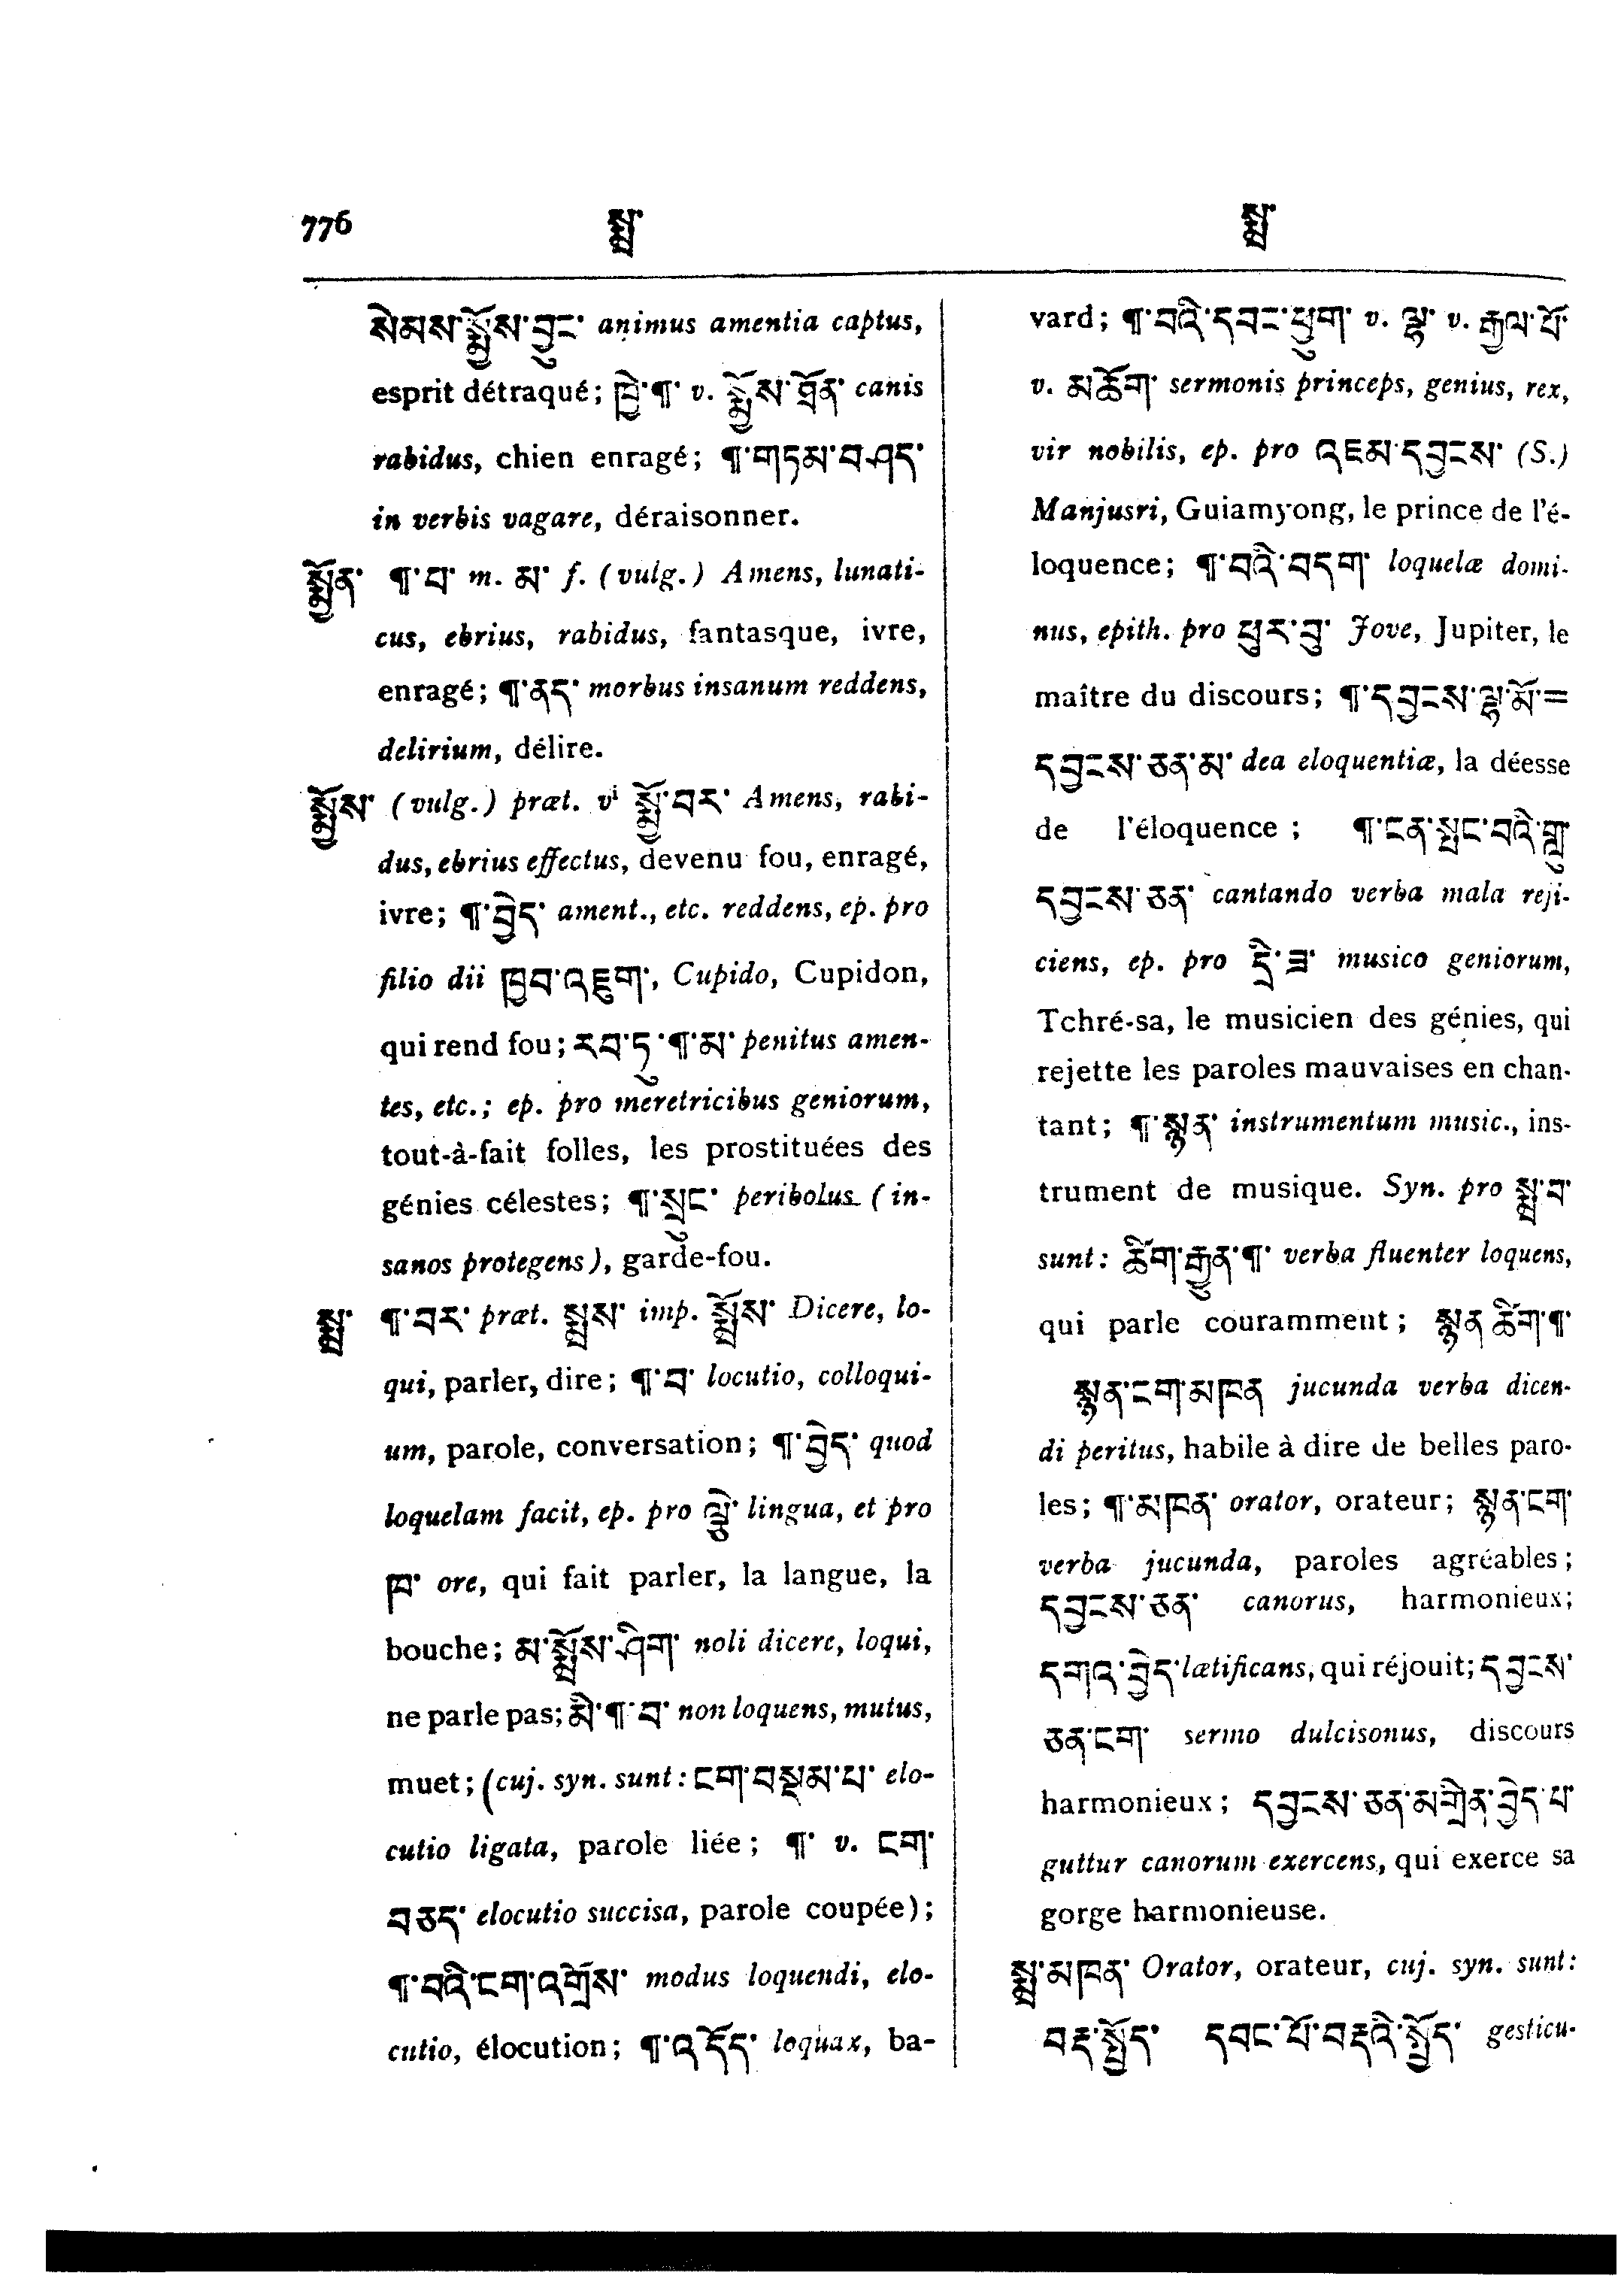 776 སྨྲ་ སྨྲ་
སེམས་སྨྱོས་བྱུང་ animus amentia captus,
esprit détraqué; ཁྱི་¶་ v. སྨྱོས་ཤྲོན་ canis
rabidus, chien enragé; ¶་གཏམ་བཤད་
in verbis vagare, déraisonner.
སྨྱོན་ ¶་པ་ m. མ་ f. (vulg.) Amens, lunati-
cus, ebrius, rabidus, fantasque, ivre,
enragé; ¶་ནད་ morbus insanum reddens,
delirium, délire.
སྨྱོས་ (vulg.) præt. vi སྨྱོ་བར་ Amens, rabi-
dus, ebrius effectus, devenu fou, enragé,
ivre; ¶་བྱེད་ ament., etc. reddens, ep. pro
filio dii ཁྱབ་འཇུག་, Cupido, Cupidon,
qui rend fou; རབ་ཏུ་¶་མ་ penitus amen-
tes, etc.; ep. pro meretricibus geniorum,
tout-à-fait folles, les prostituées des
génies célestes; ¶་སྲུང་ peribolus (in-
sanos protegens), garde-fou.
སྨྲ་ ¶་བར་ præt. སྨྲས་ imp. སྨྲོས་ Dicere, lo-
qui, parler, dire; ¶་བ་ locutio, colloqui-
um, parole, conversation; ¶་བྱེད་ quod
loquelam facit, ep. pro ལྕེ་ lingua, et pro
ཁ་ ore, qui fait parler, la langue, la
bouche; མ་སྨྲོས་ཤིག་ noli dicere, loqui,
ne parle pas; མི་¶་བ་ non loquens, mutus,
muet; (cuj. syn. sunt: ངག་བསྡམ་པ་ elo-
cutio ligata, parole liée; ¶་ v. ངག་
བཅད་ elocutio succisa, parole coupée);
¶་བའི་ངག་འགྲོས་ modus loquendi, elo-
cutio, élocution; ¶་འདོད་ loquax, ba-
vard; ¶་བའི་དབང་ཕྱུག་ v. ལྷ་ v. རྒྱལ་པོ་
v. མཆོག་ sermonis princeps, genius, rex,
vir nobilis, ep. pro འཇམ་དབྱངས་ (S.)
Manjusri, Guiamyong, le prince de l'é-
loquence; ¶་བའི་བདག་ loquelæ domi-
nus, epith. pro ཕུར་བུ་ Jove, Jupiter, le
maître du discours; ¶་དབྱངས་ལྷ་མོ་=
དབྱངས་ཅན་མ་ dea eloquentiæ, la déesse
de l'éloquence; ¶་ངན་སྤང་བའི་གླུ་
དབྱངས་ཅན་ cantando verba mala reji-
ciens, ep. pro དྲི་ཟ་ musico geniorum,
Tchré-sa, le musicien des génies, qui
rejette les paroles mauvaises en chan-
tant; ¶་སྙན་ instrumentum music., ins-
trument de musique. Syn. pro སྨྲ་བ་
sunt: ཚིག་རྒྱུན་¶་ verba fluenter loquens,
qui parle couramment; སྙན་ཚིག་¶་
སྙན་ངག་མཁན་ jucunda verba dicen-
di peritus, habile à dire de belles paro-
les; ¶་མཁན་ orator, orateur; སྙན་ངག་
verba jucunda, paroles agréables;
དབྱངས་ཅན་ canorus, harmonieux;
དགའ་བྱེད་ lætificans, qui réjouit; དབྱངས་
ཅན་ངག་ sermo dulcisonus, discours
harmonieux; དབྱངས་ཅན་མགྲིན་བྱེད་པ་
guttur canorum exercens, qui exerce sa
gorge harmonieuse.
སྨྲ་མཁན་ Orator, orateur, cuj. syn. sunt:
བརྡ་སྤྱོད་ དབང་པོ་བརྡའི་སྤྱོད་ gesticu-